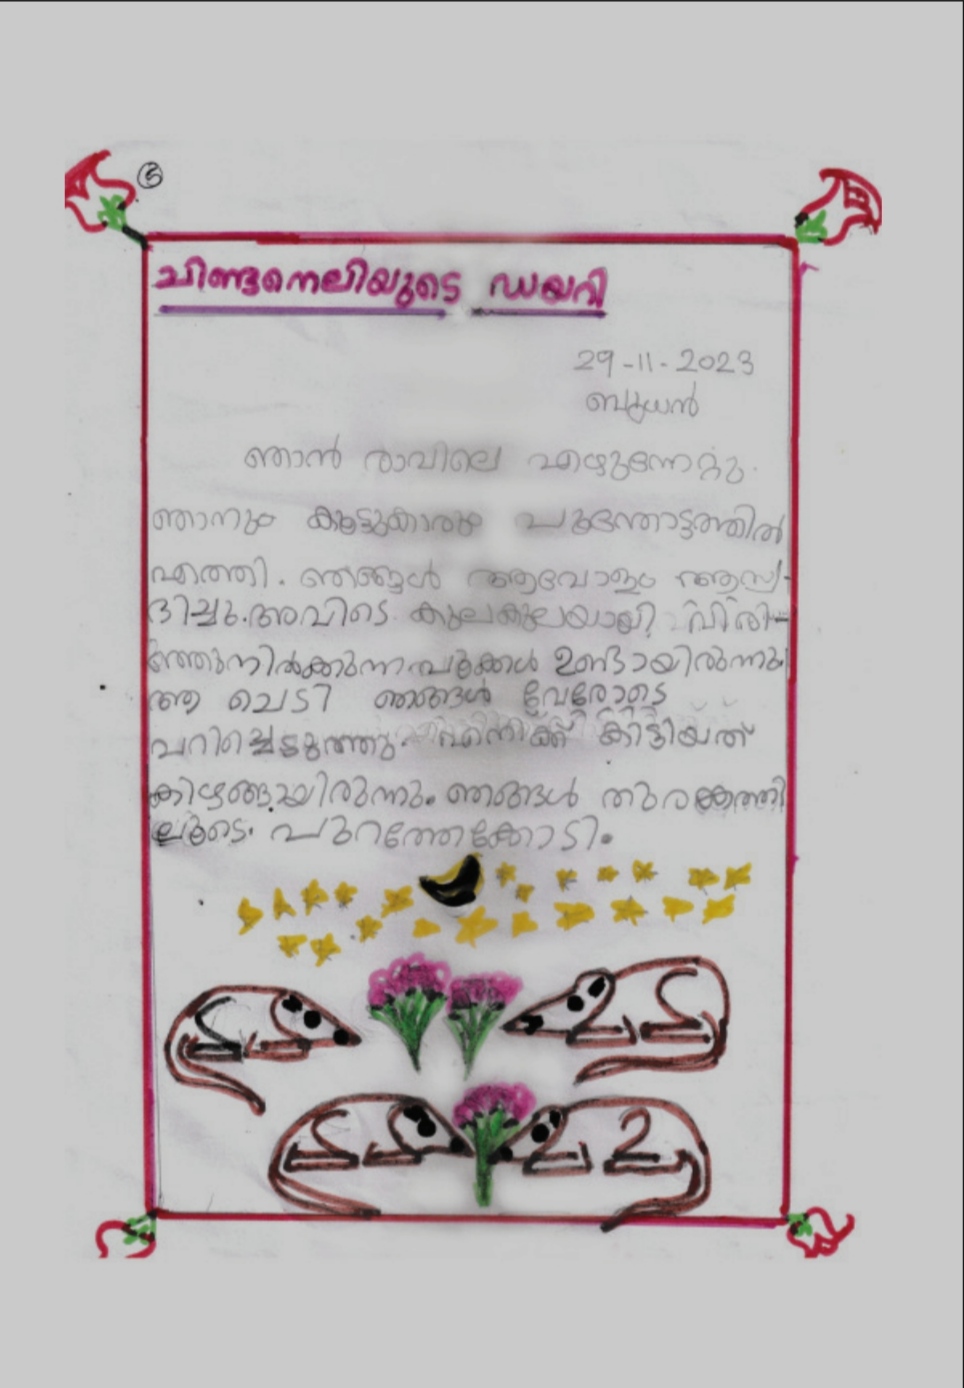 5
ചിണ്ടനെലിയുടെ ഡയറി
29-11-2023
ബുധൻ
ഞാൻ രാവിലെ എഴുന്നേറ്റു.
ഞാനും കൂട്ടുകാരും പൂന്തോട്ടത്തിൽ
എത്തി. ഞങ്ങൾ ആവോളം ആസ്വ-
ദിച്ചു. അവിടെ കുലകുലയായി വിരി-
ഞ്ഞുനിൽക്കുന്ന പൂക്കൾ ഉണ്ടായിരുന്നു
ആ ചെടി ഞങ്ങൾ വേരോടെ
പറിച്ചെടുത്തു. എനിക്ക് കിട്ടിയത്
കിഴങ്ങായിരുന്നു. ഞങ്ങൾ തുരങ്കത്തി
ലൂടെ പുറത്തേക്കോടി.